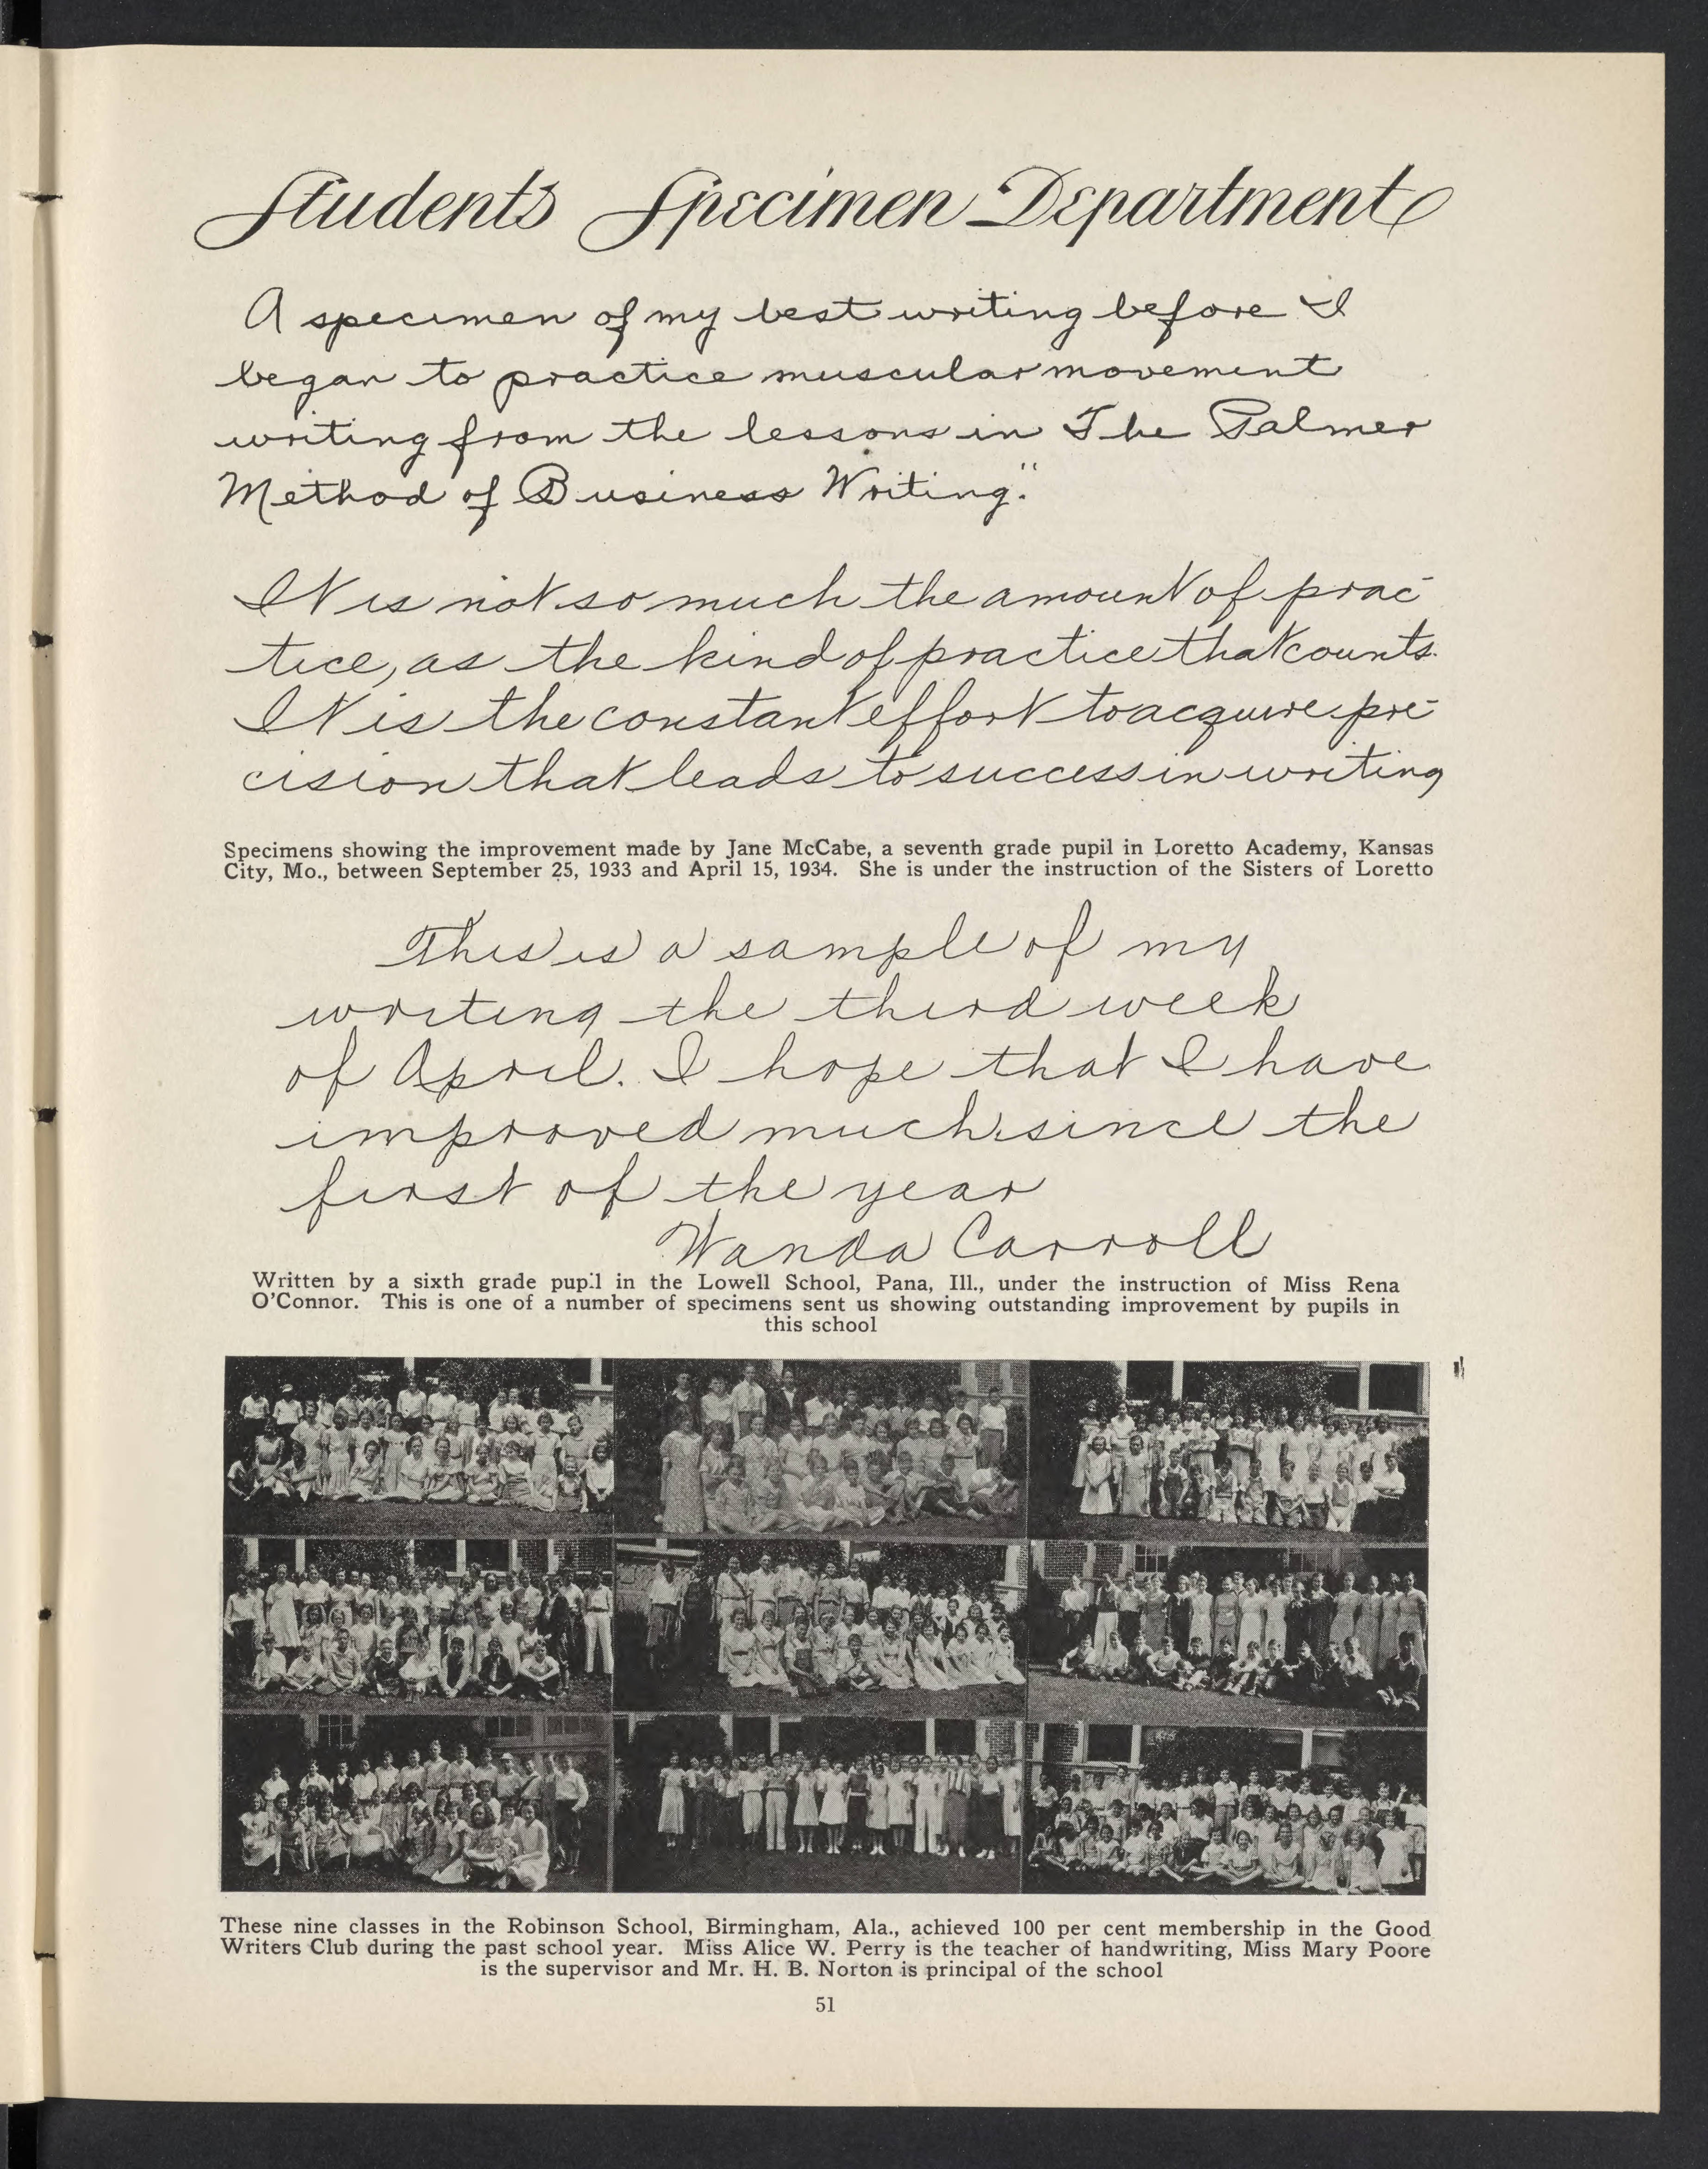 Students' Specimen Department
A specimen of my best writing before I
began to practice muscular movement
writing from the lessons in The Palmer
Method of Business Writing."
It is not so much the amount of prac-
tice, as the kind of practice that counts.
It is the constant effort to acquire pre-
cision that leads to success in writing
Specimens showing the improvement made by Jane McCabe, a seventh grade pupil in Loretto Academy, Kansas
City, Mo., between September 25, 1933 and April 15, 1934. She is under the instruction of the Sisters of Loretto
This is a sample of my
writing the third week
of April. I hope that I have
improved much since the
first of the year
Wanda Carroll
Written by a sixth grade pupil in the Lowell School, Pana, Ill., under the instruction of Miss Rena
O'Connor. This is one of a number of specimens sent us showing outstanding improvement by pupils in
this school
These nine classes in the Robinson School, Birmingham, Ala., achieved 100 per cent membership in the Good
Writers Club during the past school year. Miss Alice W. Perry is the teacher of handwriting, Miss Mary Poore
is the supervisor and Mr. H. B. Norton is principal of the school
51